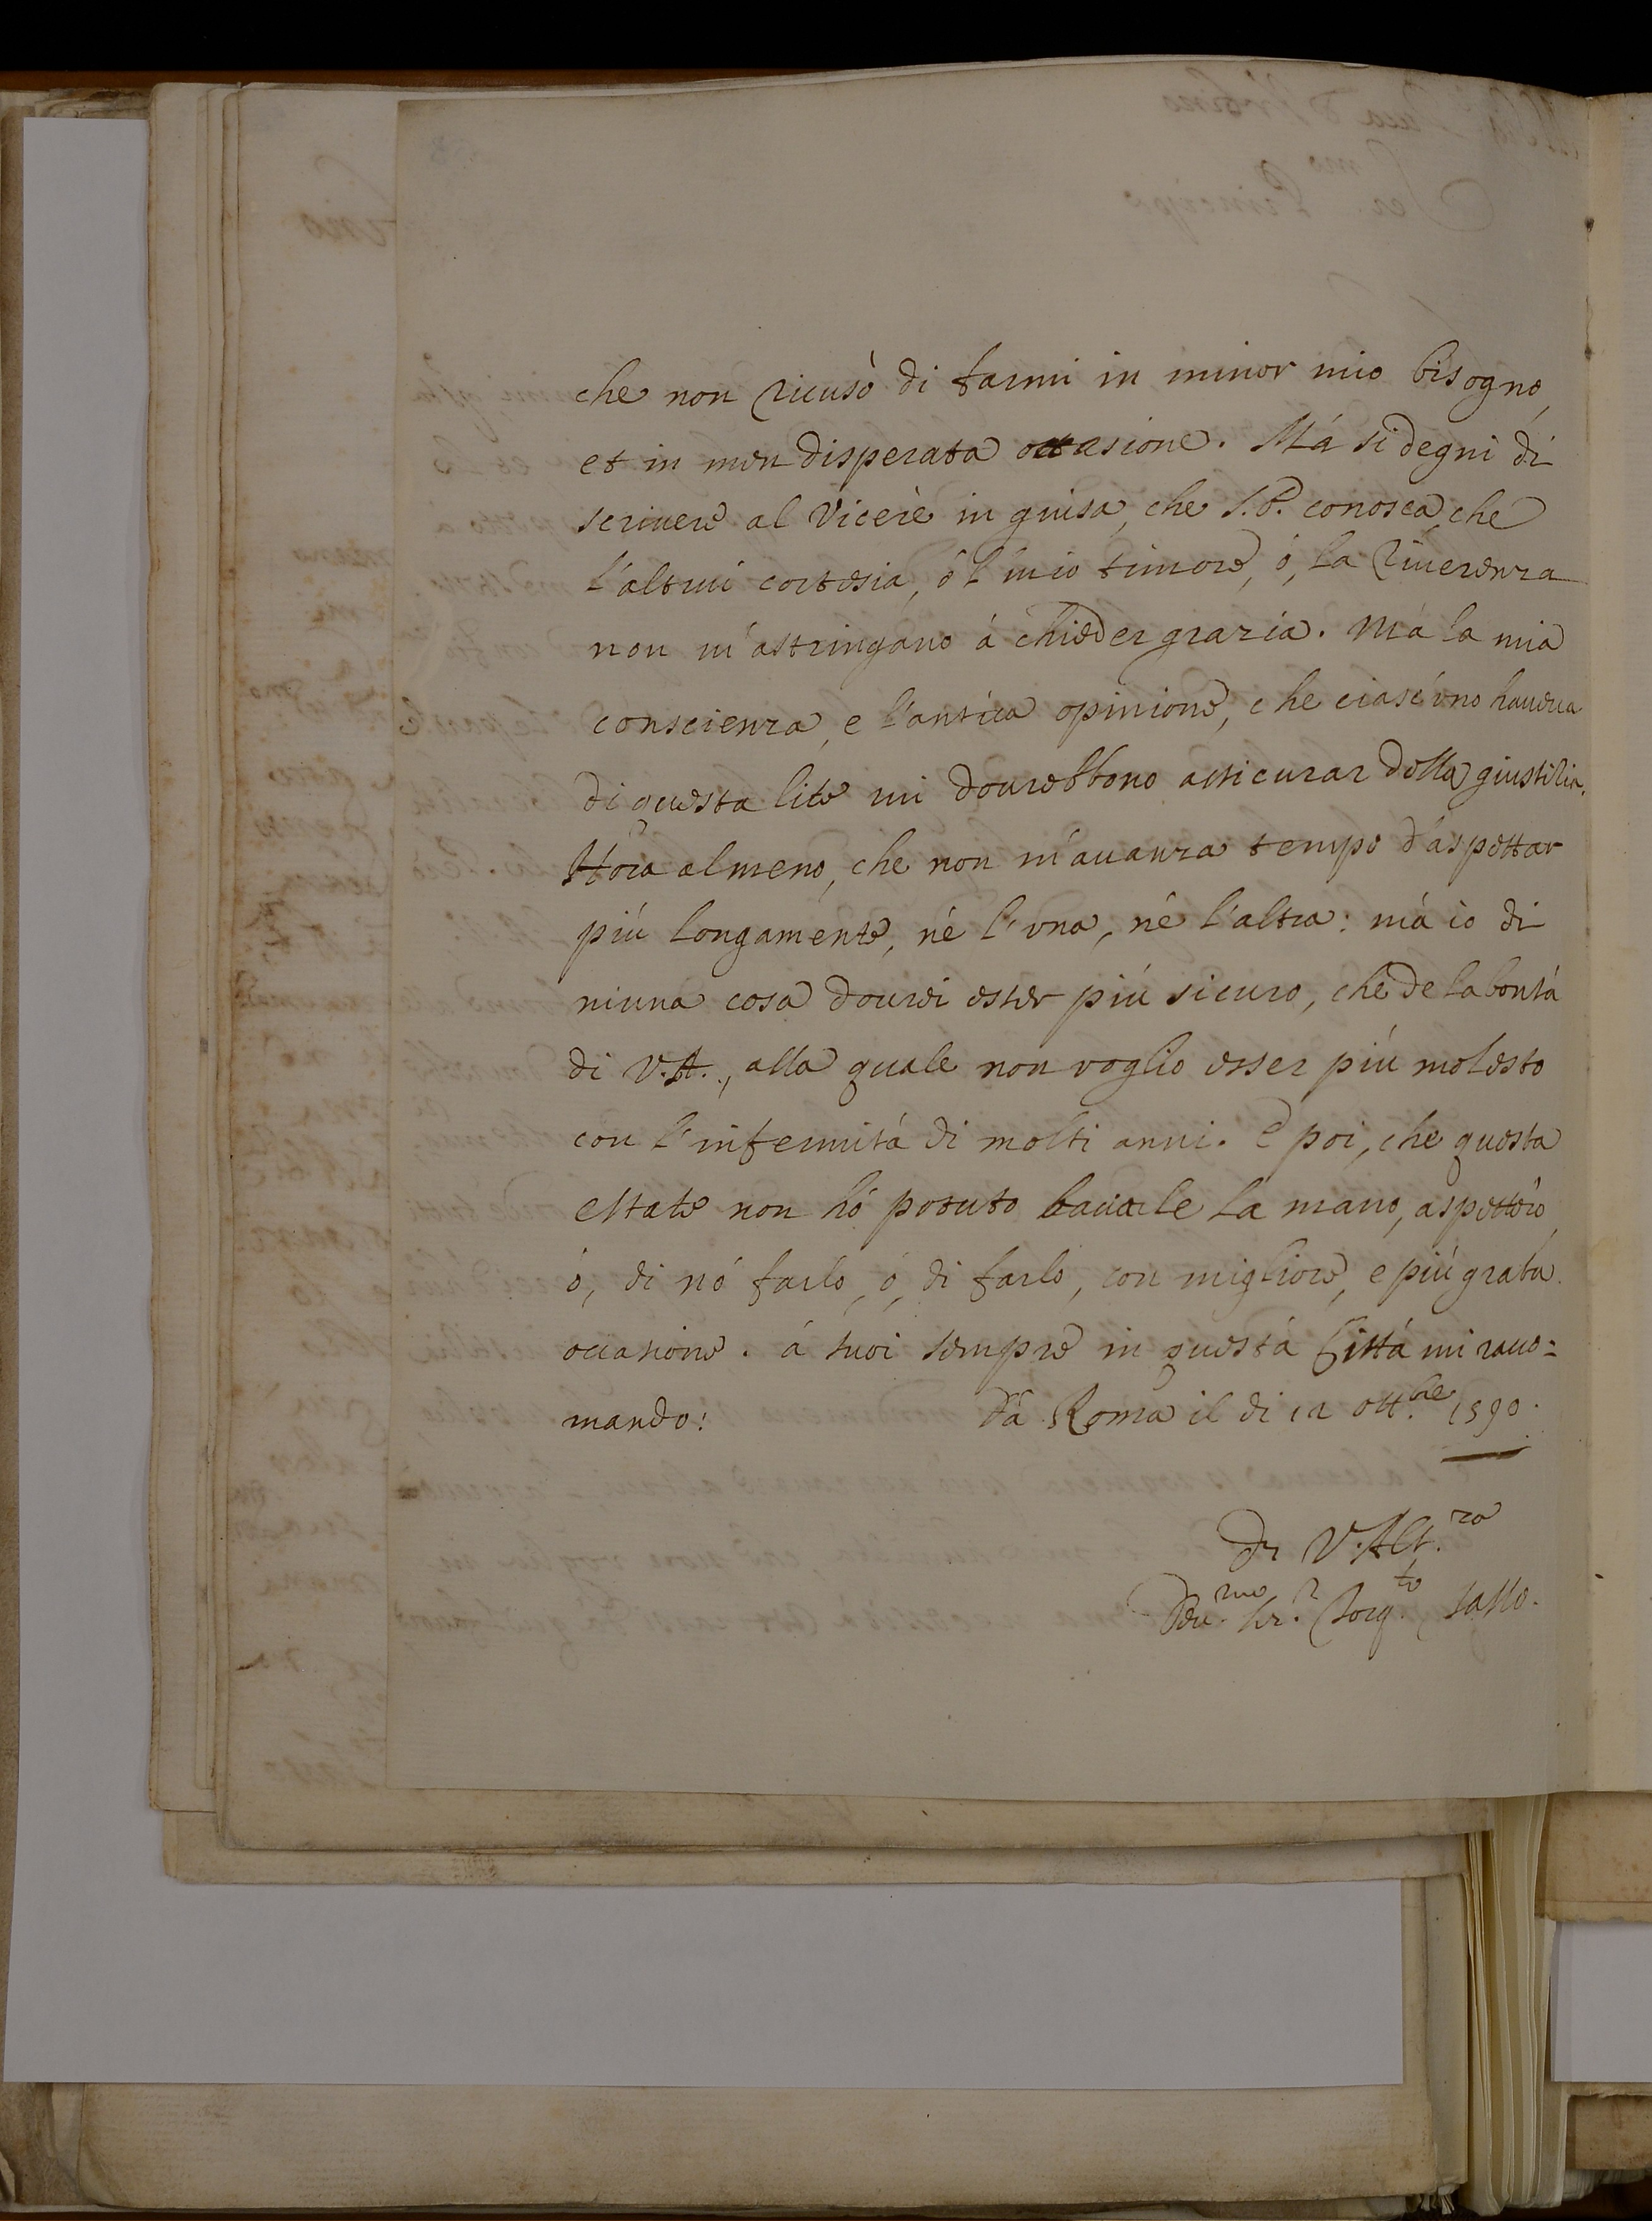 che non ricusò di farmi in minor mio bisogno,
et in men disperata occasione. Má si degni di
scriuere al Vicerè in guisa, che S. E. conosca, che
l'altrui cortesia, ó 'l mio timore, ó, la riuerenza
non m'astringano á chieder grazia. Má la mia
conscienza, e l'antica opinione, che ciascúno haueua
di questa lite mi dourebbono assicurar della giustizia.
Hora almeno, che non m'auanza tempo d'aspettar
piú longamente, né l'vna, né l'altra: má io di
niuna cosa dourei esser piú sicuro, che de la bontá
di V. A., alla quale non voglio esser piú molesto
con l'infermitá di molti anni. E poi, che questa
estate non hó potuto baciarle la mano, aspetteró,
ó, di nó farlo, ó, di farlo, con migliore, e piú grata
occasione. á suoi sempre in questa Cittá mi racco=
mando: Dá Roma il di 12 ott.bre 1590.
Di V. Alt.za
Deu.mo Sr.e Torq.to Tasso.